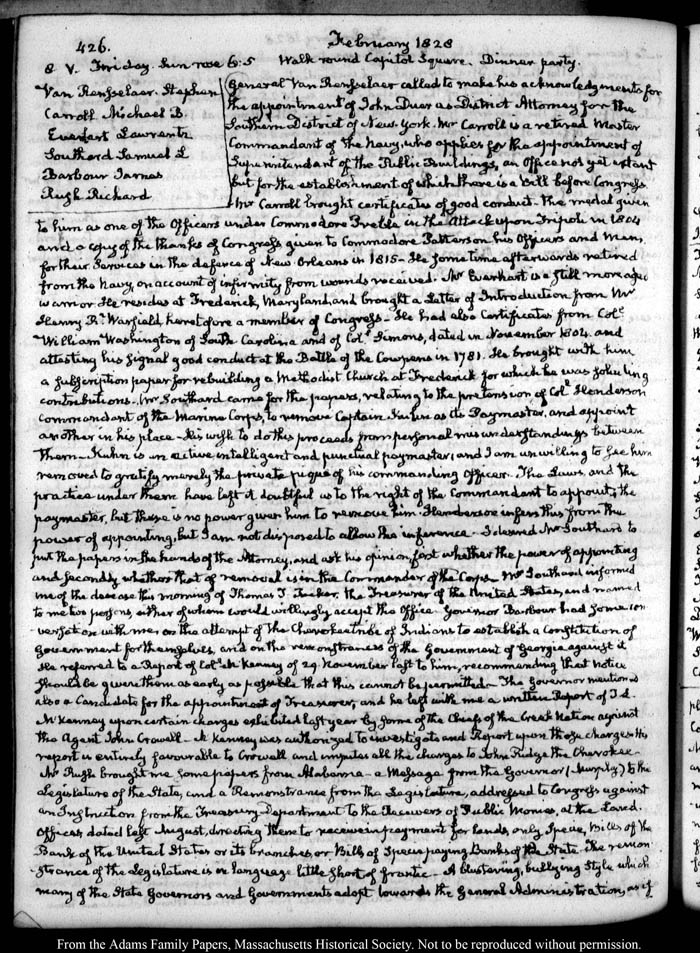 426.
February 1828
8 V. Friday. Sun rose 6:5 Walk round Capitol Square. Dinner party.
Van Rensselaer. Stephen
Carroll Michael B.
Everhart Lawrence
Southard Samuel L
Barbour James
Rush Richard
General Van Rensselaer called to make his acknowledgments for
the appointment of John Duer as District Attorney for the
Southern District of New-York. Mr Carroll is a retired Master
Commandant of the Navy, who applies for the appointment of
Superintendant of the Public Buildings, an Office not yet extant
but for the establishment of which there is a Bill before Congress
Mr Carroll brought certificates of good conduct. The medal given
to him as one of the Officers under Commodore Preble in the Attack upon Tripoli in 1804
and a copy of the thanks of Congress given to Commodore Patterson his Officers and Men,
for their Services in the defence of New Orleans in 1815 – He some time afterwards retired
from the Navy, on account of infirmity from wounds received. Mr Everhart is a still more aged
warrior. He resides at Frederick, Maryland, and brought a Letter of Introduction from Mr
Henry R. Warfield, heretofore a member of Congress – He had also Certificates from Colº
William Washington of South Carolina and of Colº Simons, dated in November 1804 and
attesting his signal good conduct at the Battle of the Cowpens in 1781. He brought with him
a subscription paper for rebuilding a Methodist Church at Frederick for which he was soliciting
contributions. Mr Southard came for the papers, relating to the pretension of Colº Henderson
Commandant of the Marine Corps, to remove Captain Kuhn as its Paymaster, and appoint
another in his place – His wish to do this proceeds from personal misunderstandings between
them – Kuhn is an active, intelligent and punctual paymaster, and I am unwilling to see him
removed to gratify merely the private pique of his commanding Officer. The Laws, and the
practice under them have left it doubtful as to the right of the Commandant to appoint the
paymaster, but there is no power given him to remove him. Henderson infers this from the
power of appointing, but I am not disposed to allow the inference – I desired Mr Southard to
put the papers in the hands of the Attorney, and ask his opinion, first whether the power of appointing
and secondly whether that of removal is in the Commander of the Corps. Mr Southard informed
me of the decease this morning of Thomas T. Tucker, the Treasurer of the United States, and named
to me two persons, either of whom would willingly accept the Office. Governor Barbour had some con
versation with me, on the attempt of the Cherokee tribe of Indians to establish a Constitution of
Government for themselves, and on the remonstrances of the Government of Georgia against it
He referred to a Report of Colº McKenney of 29 November last to him, recommending that notice
should be given them as early as possible that this cannot be permitted – The Governor mentioned
also a Candidate for the appointment of Treasurer, and he left with me a written Report of T. L.
McKenney upon certain charges exhibited last year by some of the Chiefs of the Creek Nation against
the Agent John Crowell – McKenney was authorized to investigate and Report upon those charges. His
report is entirely favourable to Crowell and imputes all the charges to John Ridge the Cherokee –
Mr Rush brought me some papers from Alabama – a Message from the Governor (Murphy) to the
Legislature of the State, and a Remonstrance from the Legislature, addressed to Congress against
an Instruction from the Treasury Department to the Receivers of Public Monies, at the Land.
Offices, dated last August, directing them to receive in payment for lands, only Specie, Bills of the
Bank of the United States or its branches, or Bills of Specie paying Banks of the State. The remon
strance of the Legislature is in language little short of frantic – A blustering, bullying style which
many of the State Governors and Governments adopt towards the General Administration, as if
From the Adams Family Papers, Massachusetts Historical Society. Not to be reproduced without permission.